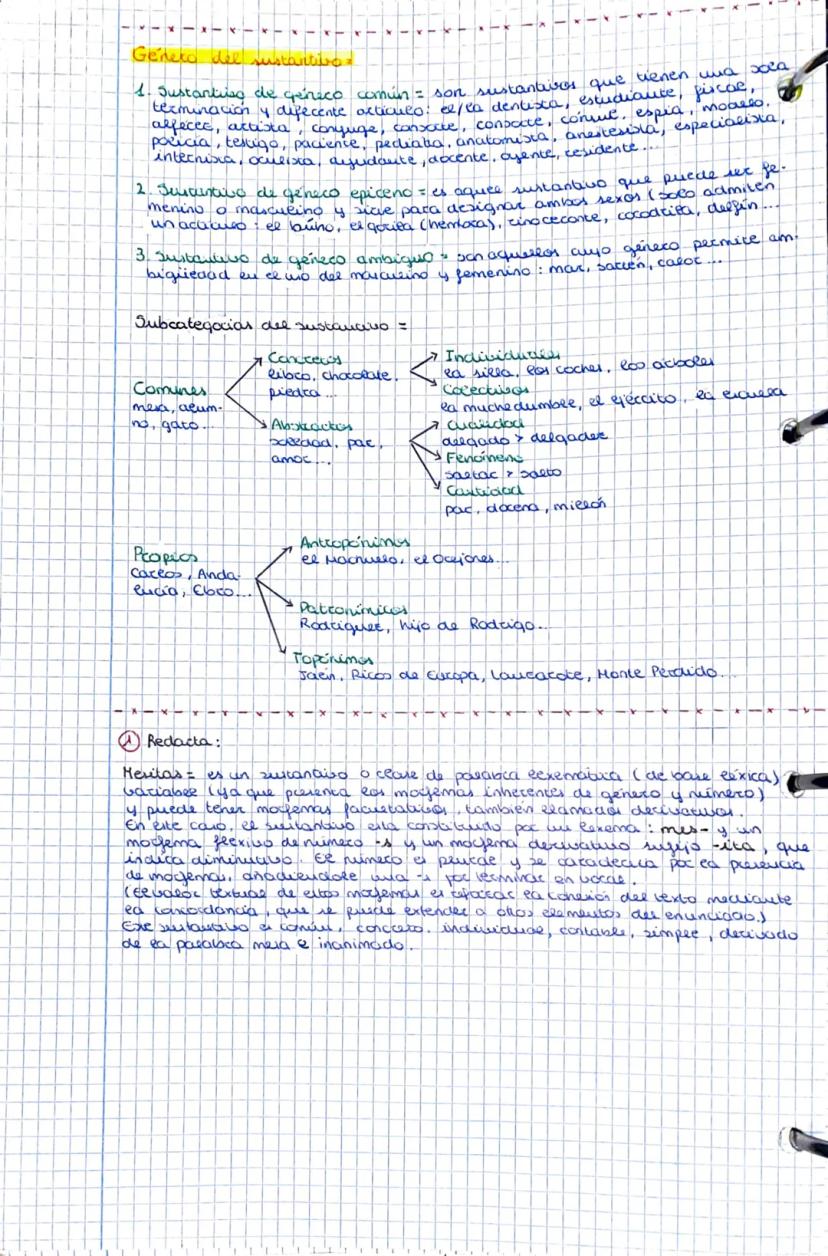 Género del sustantivo =
1. Sustantivo de género común = son sustantivos que tienen una sola
terminación y diferente artículo: el/la dentista, estudiante, fiscal,
alférez, artista, conyuge, consorte, cónsul, espía, modelo,
policía, testigo, paciente, pediatra, anatomista, anestesista, especialista,
internista, oculista, ayudante, docente, agente, residente...
2. Sustantivo de género epiceno = es aquel sustantivo que puede ser fe-
menino o masculino y sirve para designar ambos sexos (solo admiten
un artículo: el búho, el gorila (hembra), rinoceronte, cocodrilo, delfín...
3. Sustantivo de género ambiguo = son aquellos cuyo género permite am-
bigüedad en el uso del masculino y femenino: mar, sartén, calor...
Subcategorías del sustantivo =
Comunes
mesa, alum-
no, gato...
Concretos
libro, chocolate,
piedra...
Abstractos
soledad, paz,
amor...
Individuales
la silla, los coches, los árboles
Colectivos
la muchedumbre, el ejército, la escuela
Cualidad
delgado > delgadez
Fenómeno
saltar > salto
Cantidad
par, docena, millón
Propios
Carlos, Anda-
lucía, Ebro...
Antropónimos
el Machuelo, el Ocejones...
Patronímicos
Rodríguez, hijo de Rodrigo...
Topónimos
Jaén, Picos de Europa, Lanzarote, Monte Perdido...
1 Redacta:
Mesitas = es un sustantivo o clase de palabra lexemática (de base léxica)
variable (ya que presenta los morfemas inherentes de género y número)
y puede tener morfemas facultativos, también llamados derivativos.
En este caso, el sustantivo está constituido por un lexema: mes- y un
morfema flexivo de número -s y un morfema derivativo sufijo -ita, que
indica diminutivo. El número es plural y se caracteriza por la presencia
de morfemas, añadiendole una -s por terminar en vocal.
(El valor textual de estos morfemas es reforzar la cohesión del texto mediante
la concordancia, que se puede extender a otros elementos del enunciado.)
Este sustantivo es común, concreto, individual, contable, simple, derivado
de la palabra mesa e inanimado.